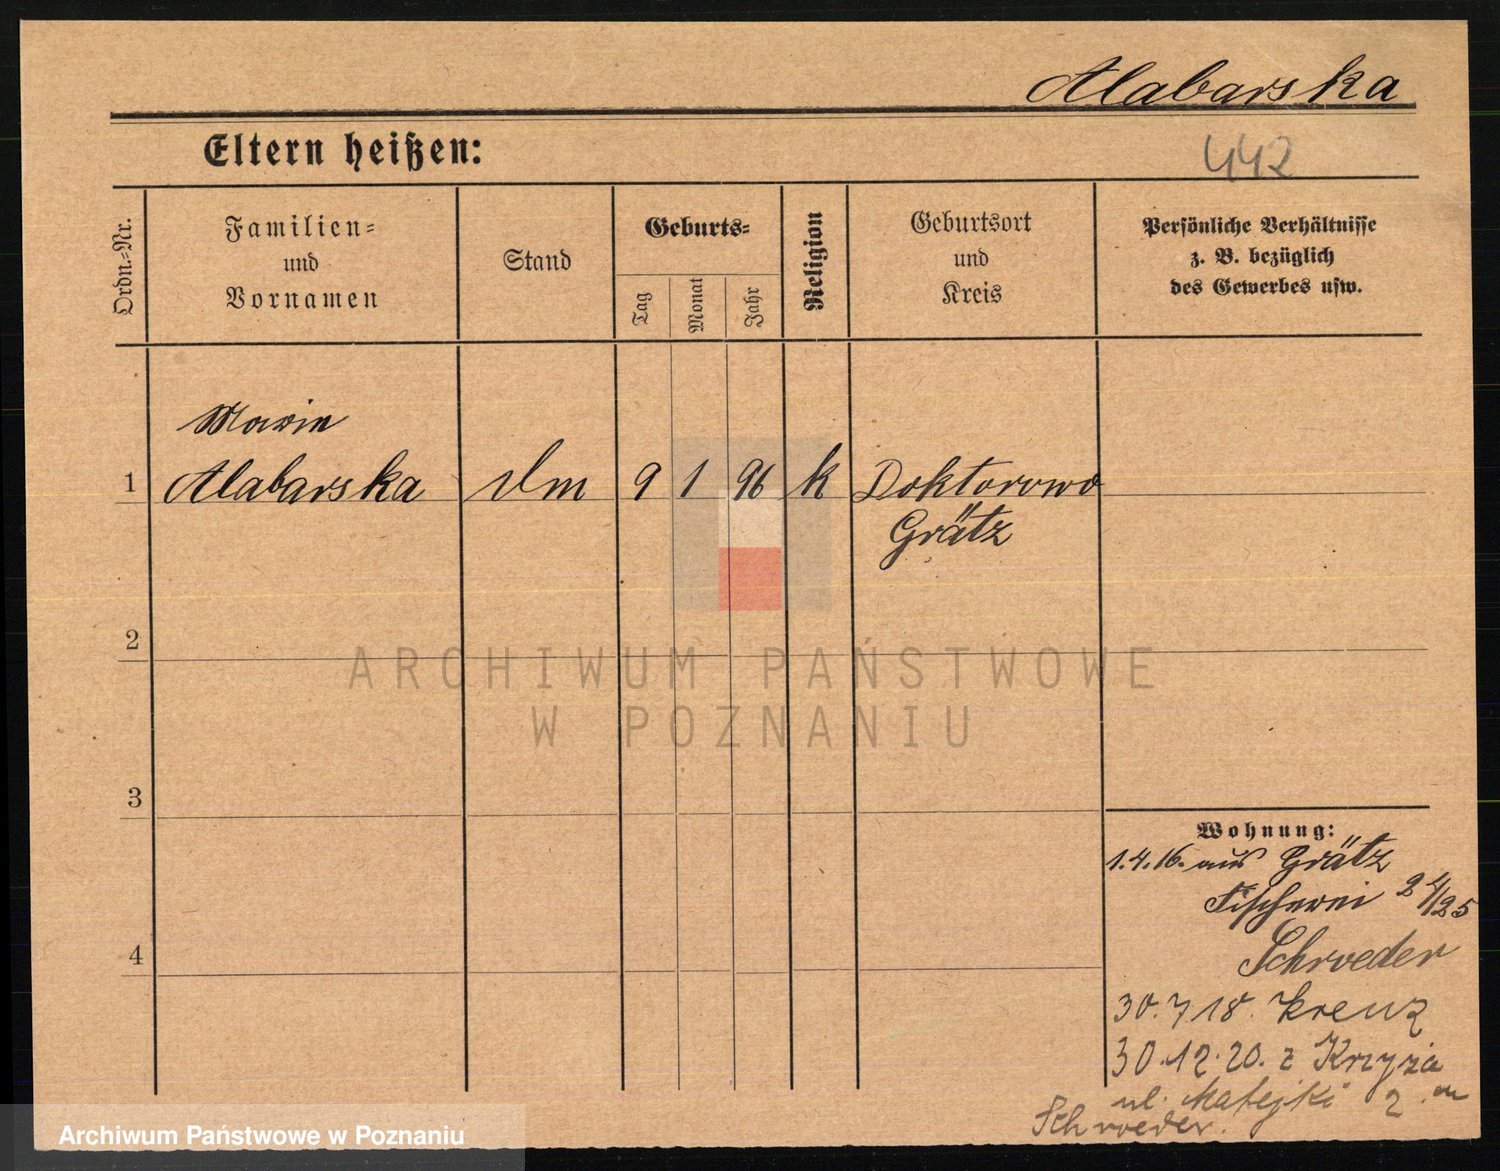 Alabarska
Eltern heißen:
442
Ordn.-Nr.
Familien-
und
Vornamen
Stand
Geburts-
Tag
Monat
Jahr
Religion
Geburtsort
und
Kreis
Persönliche Verhältnisse
z. B. bezüglich
des Gewerbes usw.
Marie
1 Alabarska 9 1 96 k Doktorowo
Grätz
2
3
4
Wohnung:
1.4.16. aus Grätz
Fischerei 2 4/25
Schroeder
30.7.18. Kreuz
30.12.20. z Krzyża
ul. Matejki 2
Schroeder.
ARCHIWUM PAŃSTWOWE
W POZNANIU
Archiwum Państwowe w Poznaniu